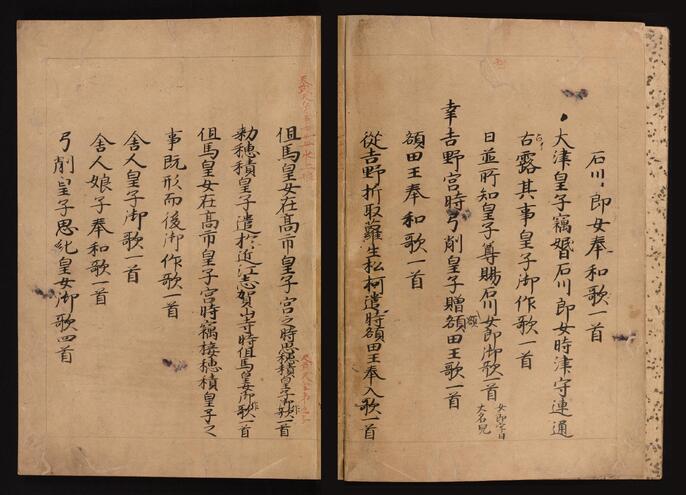 石川郎女奉和歌一首
大津皇子竊婚石川郎女時津守連通
占露其事皇子御作歌一首
日並所知皇子尊賜石川女郎御歌一首 女郎字曰
大名兒
幸吉野宮時弓削皇子贈額田王歌一首
額田王奉和歌一首
從吉野折取蘿生松柯遣時額田王奉入歌一首
但馬皇女在高市皇子宮之時思穂積皇子御作歌一首
勅穂積皇子遣於近江志賀山寺時但馬皇女御作歌一首
但馬皇女在高市皇子宮時竊接穂積皇子之
事既形而後御作歌一首
舎人皇子御歌一首
舎人娘子奉和歌一首
弓削皇子思紀皇女御歌四首